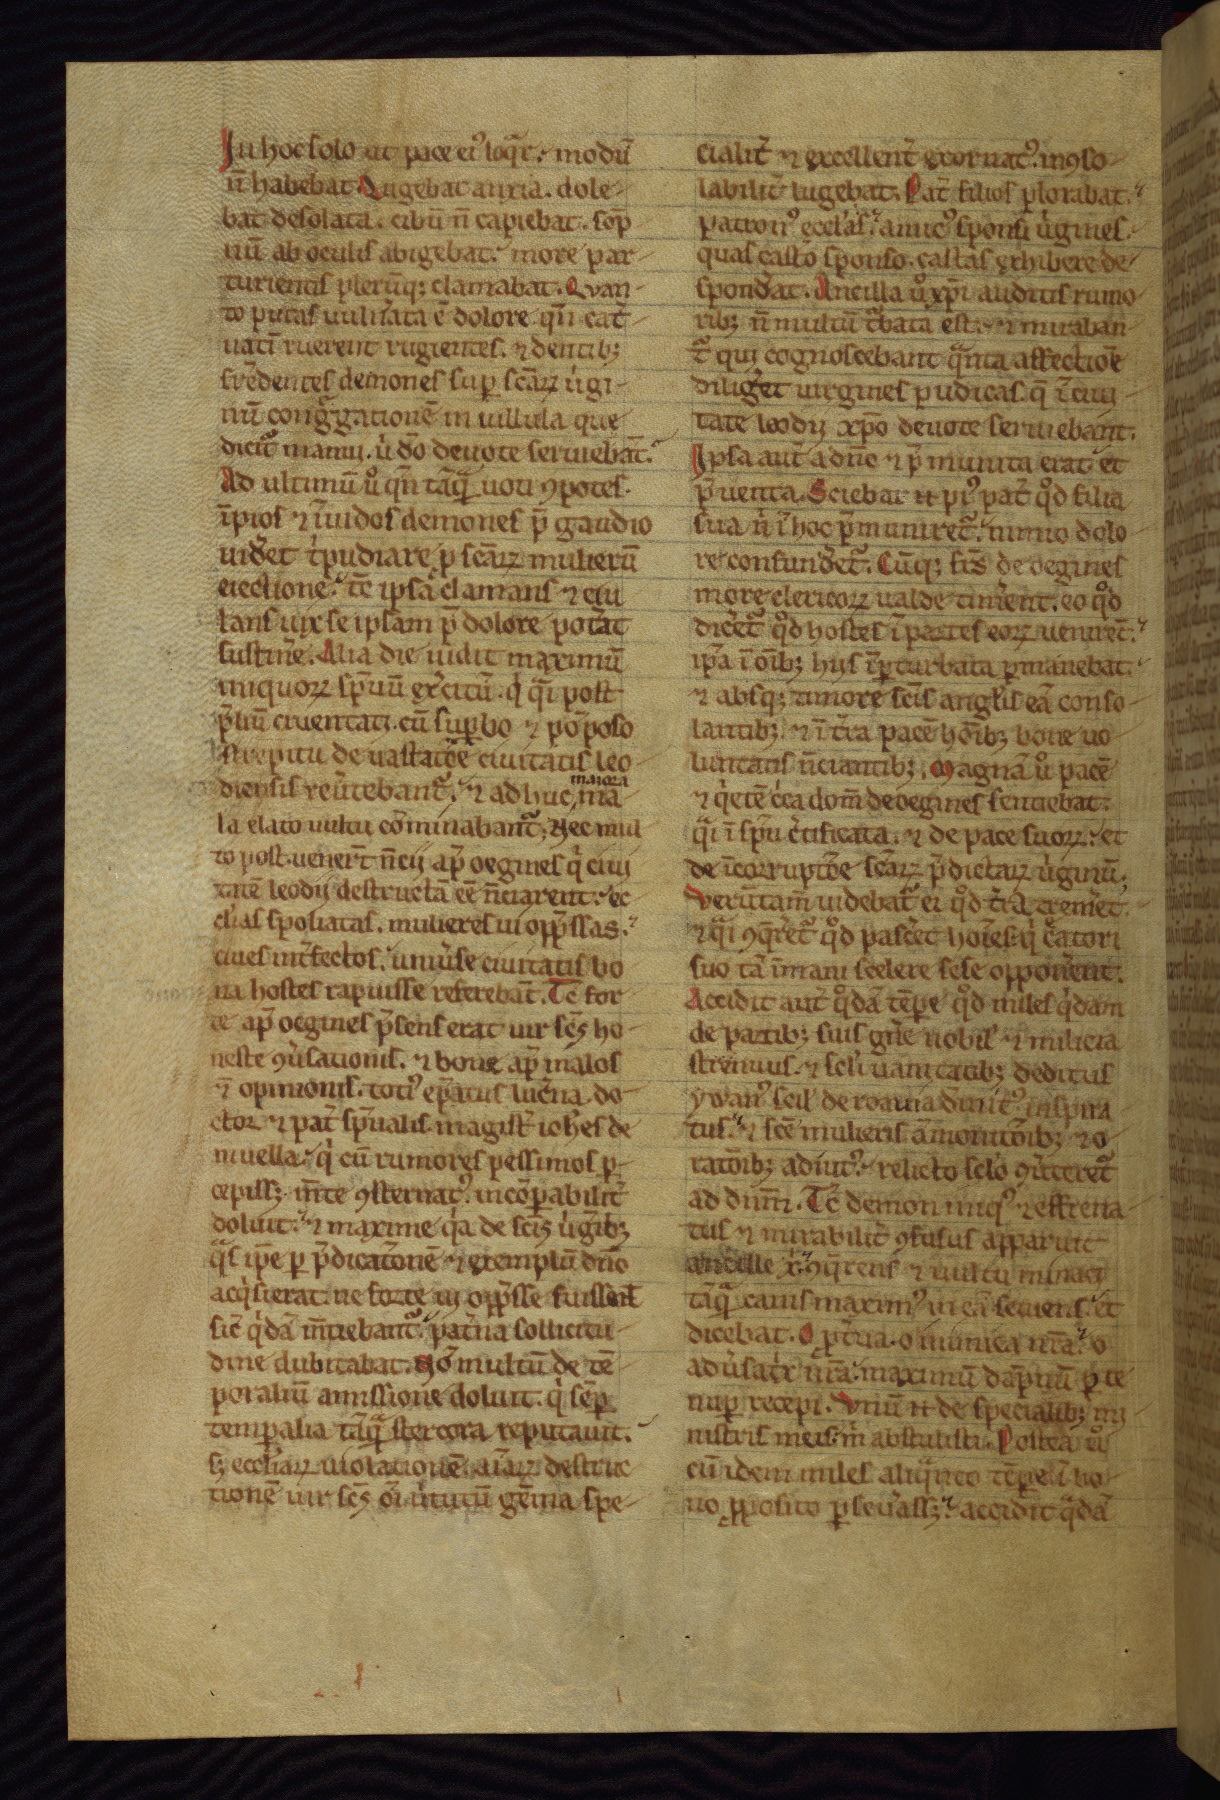 In hoc solo ut pace ei' loq̄r. modū
n̄ habebat. Lugebat anxia. dole-
bat desolata. cibū n̄ capiebat. sōp
nū ab oculis abigebat. more par-
turientis plerūq; clamabat. Quan-
to putas uuln̄ata ē dolore qn̄ cat̄
uatī ruerent rugientes. ⁊ dentib;
frēdentes demones sup sc̄aꝝ uirgi-
nū cong̃gationē in uillula que
dicit̃ manni. ubi dō deuote seruiebāt.
Ad ultimū u̾o qn̄ tāq̃ uoti ꝯpotes.
īpios ⁊ īuidos demones p̄ gaudio
uid̾et t̾pudiare p sc̄aꝝ mulierū
eiectione. tc̄ ipsa clamans ⁊ eiu
lans uix se ipsam p̄ dolore pot̾at
sustin̄e. Alia die uidit maximū
iniquoꝝ sp̄uū ex̾citū. q̇ q̄i post
p̄liū cruentati. cū sup̾bo ⁊ pōposo
strepitu de uastatōe ciuitatis leo-
diensis reu̾tebant̃. ⁊ adhuc maiora ma
la elato uultu cōminabant̃. Nec mul
to post uener̄t nūcij ap̄ oegines q̇ ciui
tatē leodij destructā eē nūciarent. ec
cl̄ias spoliatas. mulieres ui opp̄ssas.
ciues int̾fectos. uniu̾se ciuitatis bo
na hostes rapuisse referebāt. Tc̄ for
te ap̄ oegines p̄sens erat uir sc̄s ho-
neste ꝯu̾sationis. ⁊ bone ap̄ malos
⁊ opinionis. toti' ep̄atus luc̾na. do-
ctor ⁊ pat̾ sp̄ualis magist̾ ioh̄es de
niuella. q̇ cū rumores pessimos p̱-
cepiss; m̄te ꝯsternat'. incōparabilit̾
doluit. ⁊ maxime q̇a de sc̄is u̾gīb;
q̄s ip̄e per p̄dicationē ⁊ exemplū dn̄o
acq̇sierat. ne forte ui opp̄sse fuissent
sic̄ q̇dā m̄tiebant̃. pat̾na sollicitu-
dine dubitabat. Nō multū de tē-
poraliū amissione doluit. q̇ sēp
temp̱alia tāq̃ stercora reputauit.
s; eccl̄iaꝝ uiolationē. aīaꝝ destruc
tionē uir sc̄s oi u̾tutū gēma spe-
cialit̾ ⁊ excellent̾ exornat'. incōso-
labilit̾ lugebat. Pat̾ filios plorabat.
patron' eccl̄ias. amic' sponsi uirgines.
quas casto sponso. castas exhibere de-
spond̾at. Ancilla u̾o xp̄i auditis rumo-
rib; n̄ multū t̾bata est. ⁊ miraban-
t̃ qui cognoscebant q̃nta affectiōe
dilig̾et uirgines pudicas. q̄ ī ciui-
tate leodij xp̄o deuote seruiebant.
Ipsa aut̄ a dn̄o ⁊ p̄munita erat et
p̄uenta. Sciebat n̄ pi' pat̾ q̊d filia
sua n̄ ī hoc p̄muniret̃. nimio dolo-
re confund̾et̃. Cūq; frs̄ de oegines
more clericoꝝ ualde tim̾ent. eo q̊d
dic̾et̃ q̊d hostes ī partes eoꝝ uenirēt.
ip̄a ī oīb; hijs īperturbata permanebat.
⁊ absq; timore sc̄is angl̄is eā conso-
lantib;. ⁊ ī t̾ra pacē hōīb; bone uo-
luntatis nūciantib;. Magnā u̾o pacē
⁊ q̇etē c̾ca dom̄ de oegines sentiebat.
q̃i ī sp̄u c̾tificata. ⁊ de pace suoꝝ. et
de īcorruptiōe sc̄aꝝ p̄dictaꝝ u̾ginū.
Verūtam̄ uidebat̃ ei q̊d t̾ra crem̾et
⁊ q̃i ꝯq̾ret̃ q̊d pasc̾et hoīes q̇ c̾atori
suo tā īmani scelere sese oppon̾ent.
Accidit aut̄ q̊dā tēpe q̊d miles q̇dam
de partib; suis gn̄e nobil' ⁊ milicia
strenuus. ⁊ sc̄li uanitatib; deditus
ywan' scil' de roauia diuinit'. inspira
tus. ⁊ sc̄e mulieris āmonitōib; ⁊ o-
ratōib; adiut'. relicto sc̄lo ꝯu̾teret̃
ad dn̄m. Tc̄ demon iniq' ⁊ effrena-
tus ⁊ mirabilit̾ ꝯfusus apparuit
ancille xi. ꝯq̾rens ⁊ uultu minaci
tāq̃ canis maxim' in eā seuiens. et
dicebat. O ptua. o inimica nr̄a. o
adu̾sat̾x nr̄a. maximū dāpnū p̱ te
nup̱ recepi. Vnū n̄ de specialib; mi-
nistris meis m̄ abstulisti. Postea u̾o
cū idem miles aliq̃nto tēpe ī bo-
no p̱posito p̱seu̾ass;. accidit q̃dā